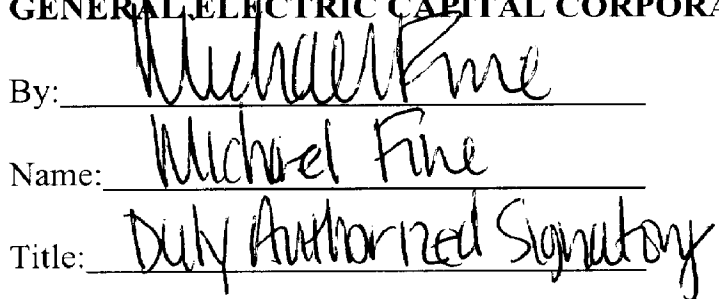 GENERAL ELECTRIC CAPITAL CORPORA
By: Michael Fine
Name: Michael Fine
Title: Duly Authorized Signatory